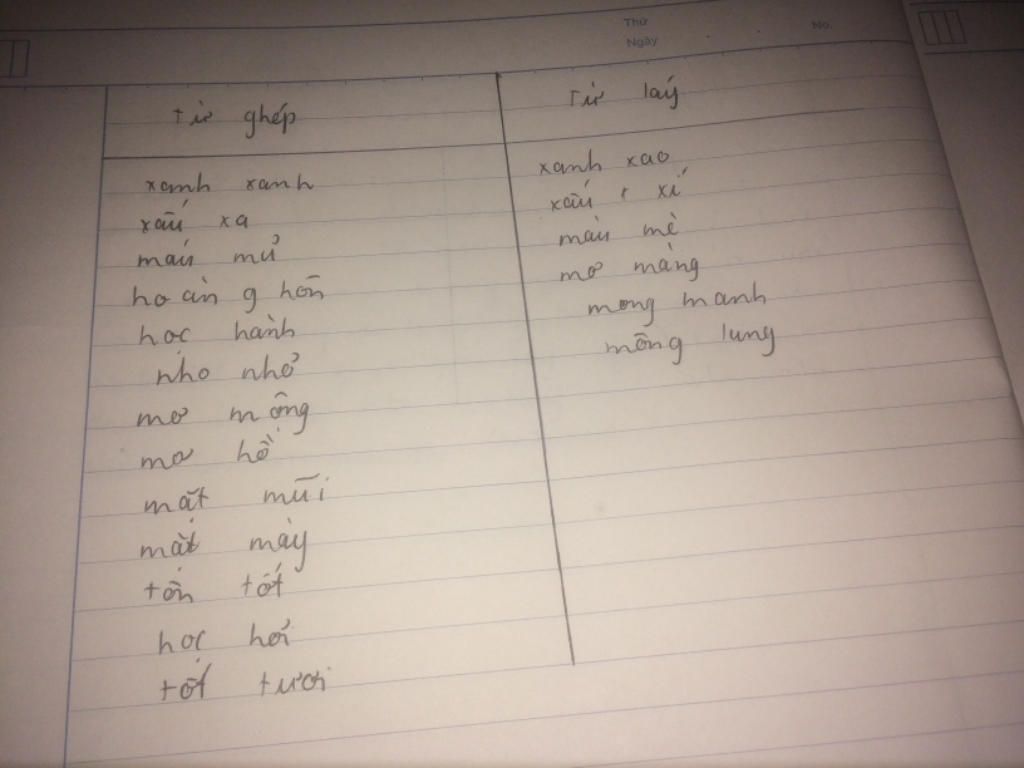 Thứ
Ngày
No.
từ ghép
từ láy
xanh xanh
xấu xa
máu mủ
hoàng hôn
học hành
nho nhỏ
mơ mộng
mơ hồ
mắt mũi
mặt mày
tồn tốt
học hỏi
tốt tươi
xanh xao
xấu xí
màu mè
mơ màng
mong manh
mông lung